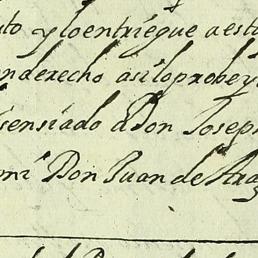 to y lo entriegue a esta
en derecho asi lo probey
sensiado a Don Joseph
mi Don Juan de Ara